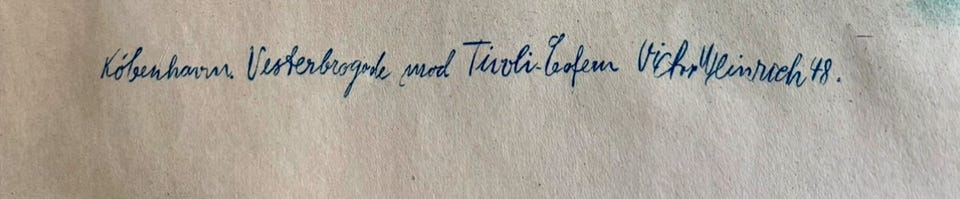 København. Vesterbrogade mod Tivoli. Victor Heinrich 48.